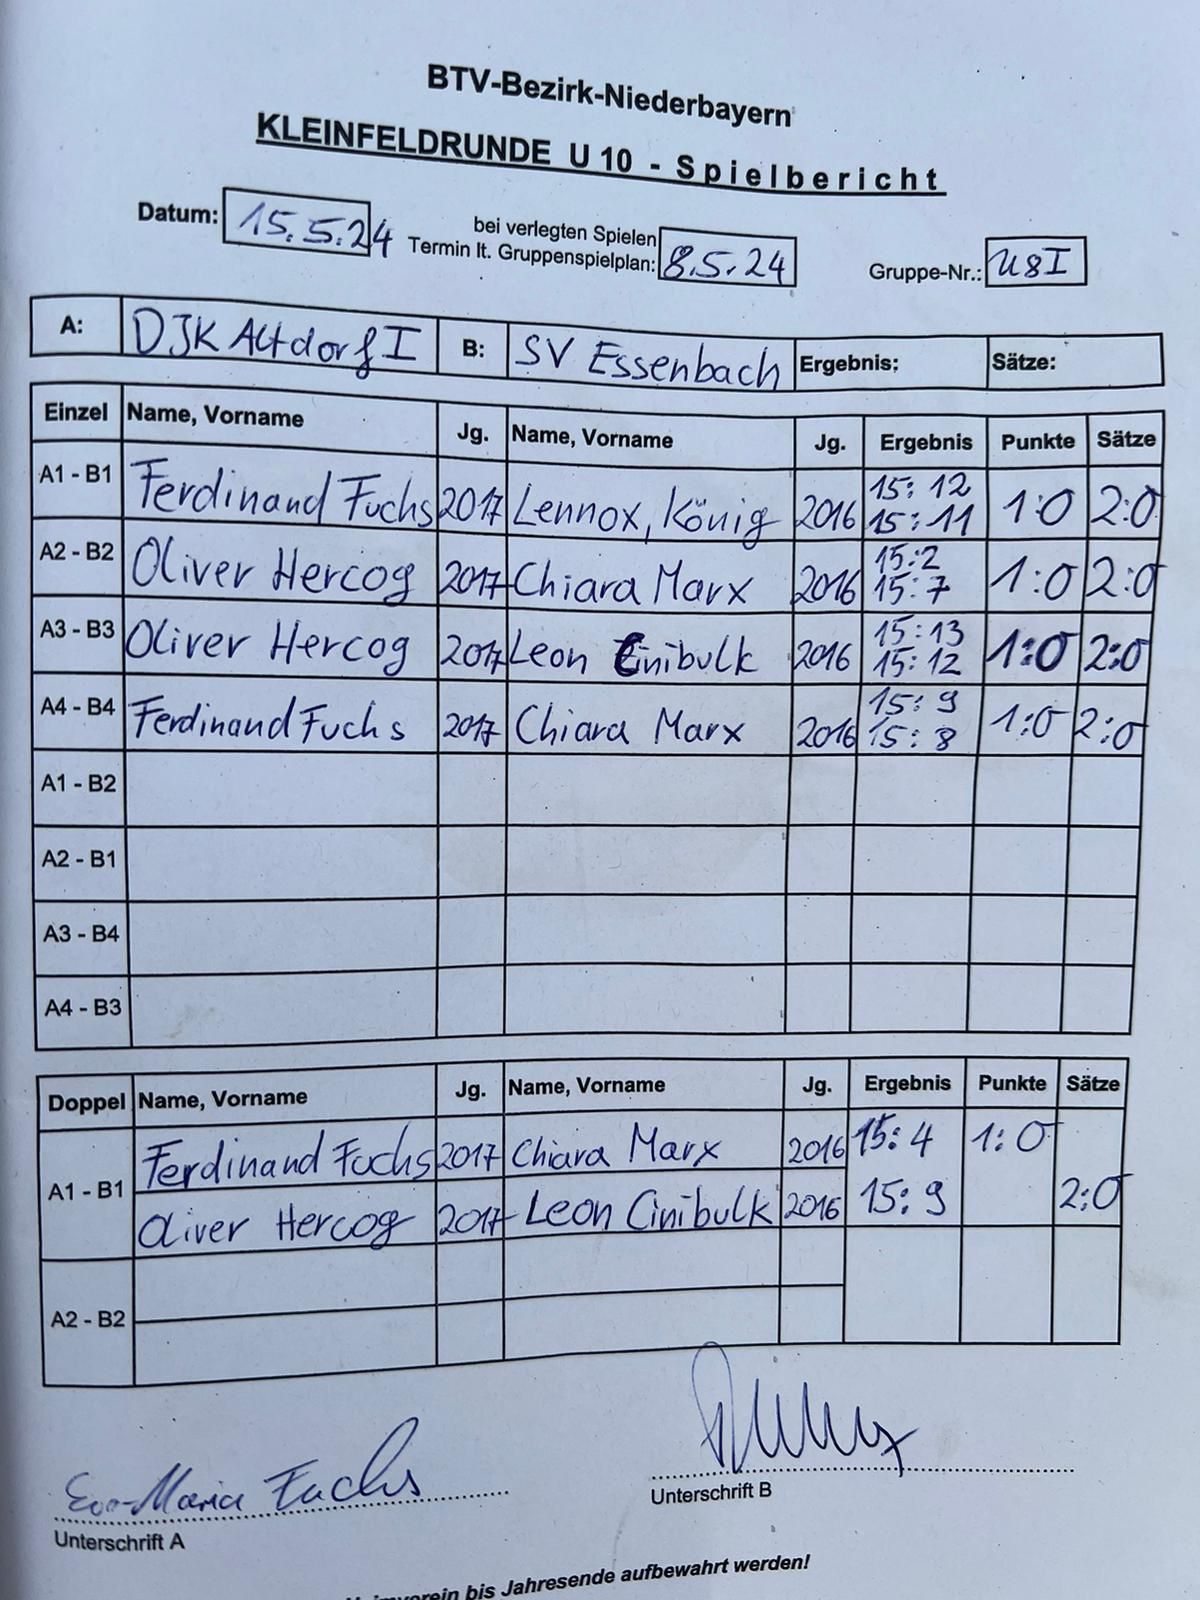 BTV-Bezirk-Niederbayern
KLEINFELDRUNDE U 10 - Spielbericht
Datum: 15.5.24 bei verlegten Spielen Termin lt. Gruppenspielplan: 8.5.24 Gruppe-Nr.: U8I
A: DJK Altdorf I B: SV Essenbach Ergebnis: Sätze:
Einzel Name, Vorname Jg. Name, Vorname Jg. Ergebnis Punkte Sätze
A1 - B1 Ferdinand Fuchs 2017 Lennox, König 2016 15:12 15:11 1:0 2:0
A2 - B2 Oliver Hercog 2017 Chiara Marx 2016 15:2 15:7 1:0 2:0
A3 - B3 Oliver Hercog 2017 Leon Cinibulk 2016 15:13 15:12 1:0 2:0
A4 - B4 Ferdinand Fuchs 2017 Chiara Marx 2016 15:9 15:8 1:0 2:0
A1 - B2
A2 - B1
A3 - B4
A4 - B3
Doppel Name, Vorname Jg. Name, Vorname Jg. Ergebnis Punkte Sätze
A1 - B1 Ferdinand Fuchs 2017 Chiara Marx 2016 15:4 1:0
Oliver Hercog 2017 Leon Cinibulk 2016 15:9 2:0
A2 - B2
Eva-Maria Fuchs
Unterschrift A
Unterschrift B
bis Jahresende aufbewahrt werden!